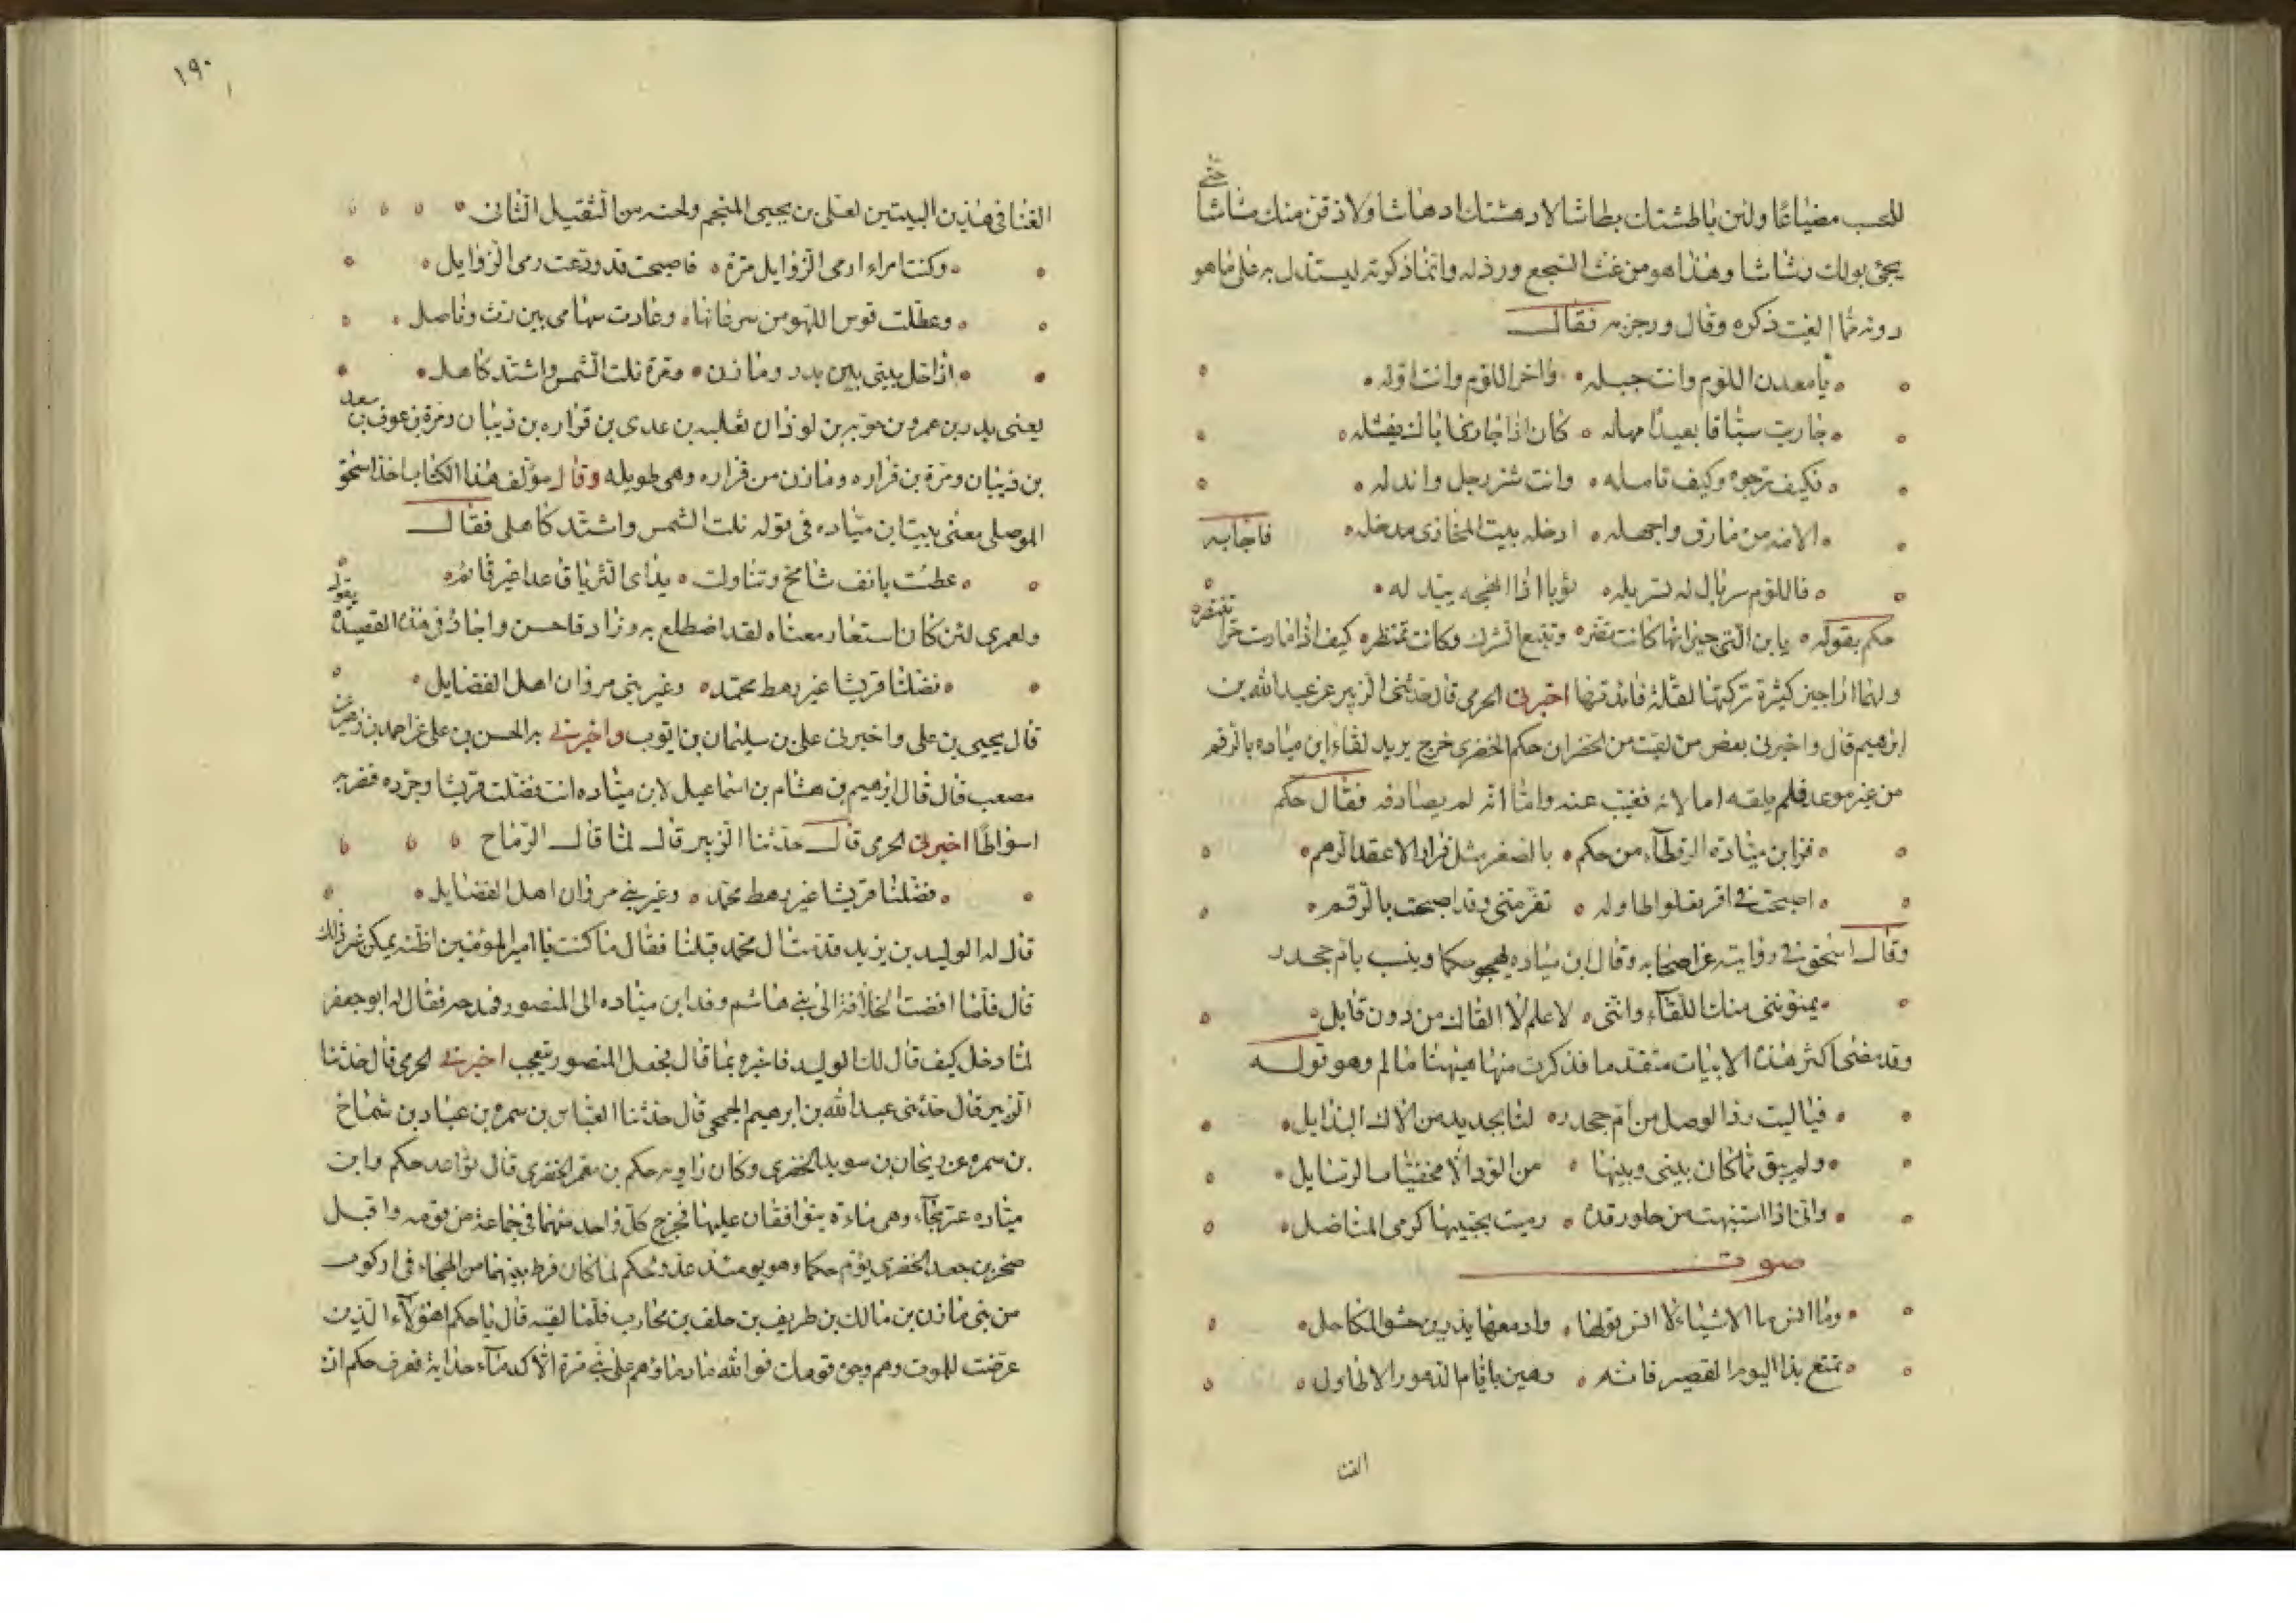 للحسب مضياعا ولئن باطشتك بطاشا لادهشنك ادهاشا ولاذقن منك مشاشا حتى
يجئ بولك رشاشا وهذا هو من غث السجع ورذله وانما ذكرته ليستدل به على ما هو
دونه مما الغيت ذكره وقال ورجز به فقال
يا معدن اللؤم وانت جبله واخر اللؤم وانت اوله
جاريت سباقا بعيدا مهله كان اذا جارى اباك يفشله
فكيف ترجوه وكيف تامله وانت شر رجل وانذله
الامه من مازق واجهله ادخله بيت المخازى مدخله
فاللؤم سربال له يسربله ثوبا اذا انهجه يبدله فاجابه
حكم بقوله يا بن التى جيرانها كانت تضر وتتبع الشرك وكانت تمتطر كيف اذا مارست حرا تنتفره
ولهما اراجيز كثيرة تركتها لقلة فايدتها اخبرنى الحرمى قال حدثنى الزبير عن عبد الله بن
ابرهيم قال واخبرنى بعض من لقيت من الخضر ان حكم الخضرى خرج يريد لقاء ابن مياده بالرقم
من غير موعد فلم يلقه اما لانه تغيب عنه واما انه لم يصادفه فقال حكم
فر ابن ميادة الرقطاء من حكم بالصغر مثل فرار الاعقد الرهم
اصبحت فى اقر تعلو اطاوله تفر منى وقد اصبحت بالرقم
وقال اسحق فى روايته عن اصحابه وقال ابن مياده يهجو حكما وينسب بام جحدر
يمنوننى منك اللقاء واننى لاعلم لا القاك من دون قابل
وقد مضى اكثر هذه الابيات متقدما فذكرت منها هيهنا ما لم وهو قوله
فيا ليت رذ الوصل من ام جحدر لنا بجديد من الاك البذايل
ولم يبق مما كان بينى وبينها من الود الا مخفيات الرسايل
وانى اذا استنبهت من حلو رقدة رميت بجنبيها كرمى المناضل
صوت
وما انس م الاشياء لا انس قولها وادمعها يذرين حشو المكاحل
تمتع بذا اليوم القصير فانه رهين بايام الدهور الاطاول
الغنا
١٩٠
الغنا فى هذين البيتين لعلى بن يحيى المنجم ولحنه من الثقيل الثانى
وكنت امراء ارمى الزوايل مرة فاصبحت قد ودعت رمى الزوايل
وعطلت قوس اللهو من سرعانها وعادت سهامى بين رث وناصل
اذا حل بيتى بين بدر ومازن ومرة نلت الشمس واشتد كاهلى
يعنى بدر بن عمرو بن جوير بن لوذان ثعلبه بن عدى بن فزاره بن ذيبان ومرة بن عوف بن سعد
بن ذيبان ومرة بن فزاره ومازن من فزاره وهى طويله وقال مؤلف هذا الكتاب اخذ اسحق
الموصلى معنى بيت ابن مياده فى قوله نلت الشمس واشتد كاهلى فقال
عطست بانف شامخ وتناولت يداى الثريا قاعدا غير قائم
ولعمرى لئن كان استعار معناه لقد اضطلع به وزاد فاحسن واجاد فى هذه القصيدة يقول
فضلنا قريشا غير رهط محمد وغير بنى مروان اهل الفضايل
قال يحيى بن على واخبرنى على بن سليمان بن ايوب واخبرنى به الحسن بن على عن احمد بن زهير عن
مصعب قال قال ابرهيم بن هشام بن اسماعيل لابن مياده انت فضلت قريشا وجرده فضربه
اسواطا اخبرنى الحرمى قال حدثنا الزبير قال لما قال الرماح
فضلنا قريشا غير رهط محمد وغير بنى مروان اهل الفضايل
قال له الوليد بن يزيد قدمت ال محمد قبلنا فقال ما كنت يا امير المؤمنين اظنه يمكن غير ذلك
قال فلما افضت الخلافة الى بنى هاشم وفد ابن مياده الى المنصور فمدحه فقال له ابو جعفر
لما دخل كيف قال لك الوليد فاخبره بما قال فجعل المنصور يتعجب اخبرنى الحرمى قال حدثنا
الزبير قال حدثنى عبد الله بن ابرهيم الجمحى قال حدثنا العباس بن سمره بن عباد بن شماخ
بن سمره عن ريحان بن سويد الخضرى وكان راويه حكم بن معمر الخضرى قال تواعد حكم وابن
مياده عريجاء وهى ماءة يتوافقان عليها فخرج كل واحد منهما فى جماعة من قومه واقبل
صخر بن جعد الخضرى يؤم حكما وهو يومئذ عدو لحكم لما كان فرط بينهما من الهجاء فى اركوب
من بنى مازن بن مالك بن طريف بن خلف بن محارب فلما لقيه قال يا حكم اهؤلاء الذين
عرضت للموت وهم وجوه قومك فوالله ما دماؤهم على بنى مرة الا كدماء جداية فعرف حكم ان